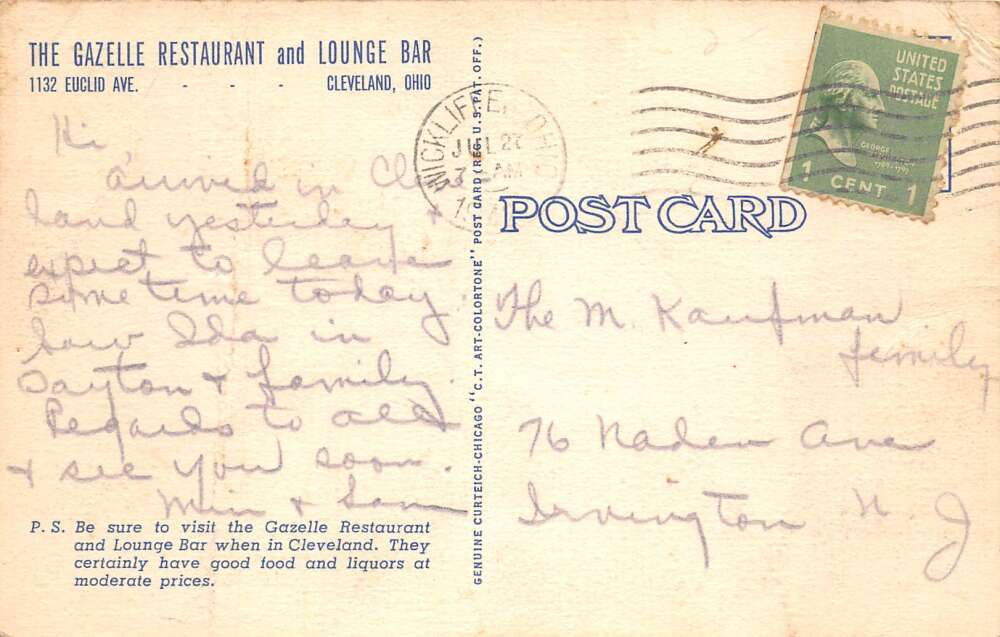 THE GAZELLE RESTAURANT and LOUNGE BAR
1132 EUCLID AVE. - - - CLEVELAND, OHIO
Hi,
Arrived in Cleve
land yesterday &
expect to leave
some time today.
Saw Ida in
Dayton & family.
Regards to all
& see you soon.
Min & Sam
P. S. Be sure to visit the Gazelle Restaurant
and Lounge Bar when in Cleveland. They
certainly have good food and liquors at
moderate prices.
GENUINE CURTEICH-CHICAGO "C.T. ART-COLORTONE" POST CARD (REG. U.S. PAT. OFF.)
WICKLIFFE, OHIO
JUL 27
AM
POST CARD
UNITED
STATES
POSTAGE
GEORGE
WASHINGTON
1 CENT 1
The M. Kaufman
family
76 Naden Ave
Irvington N J